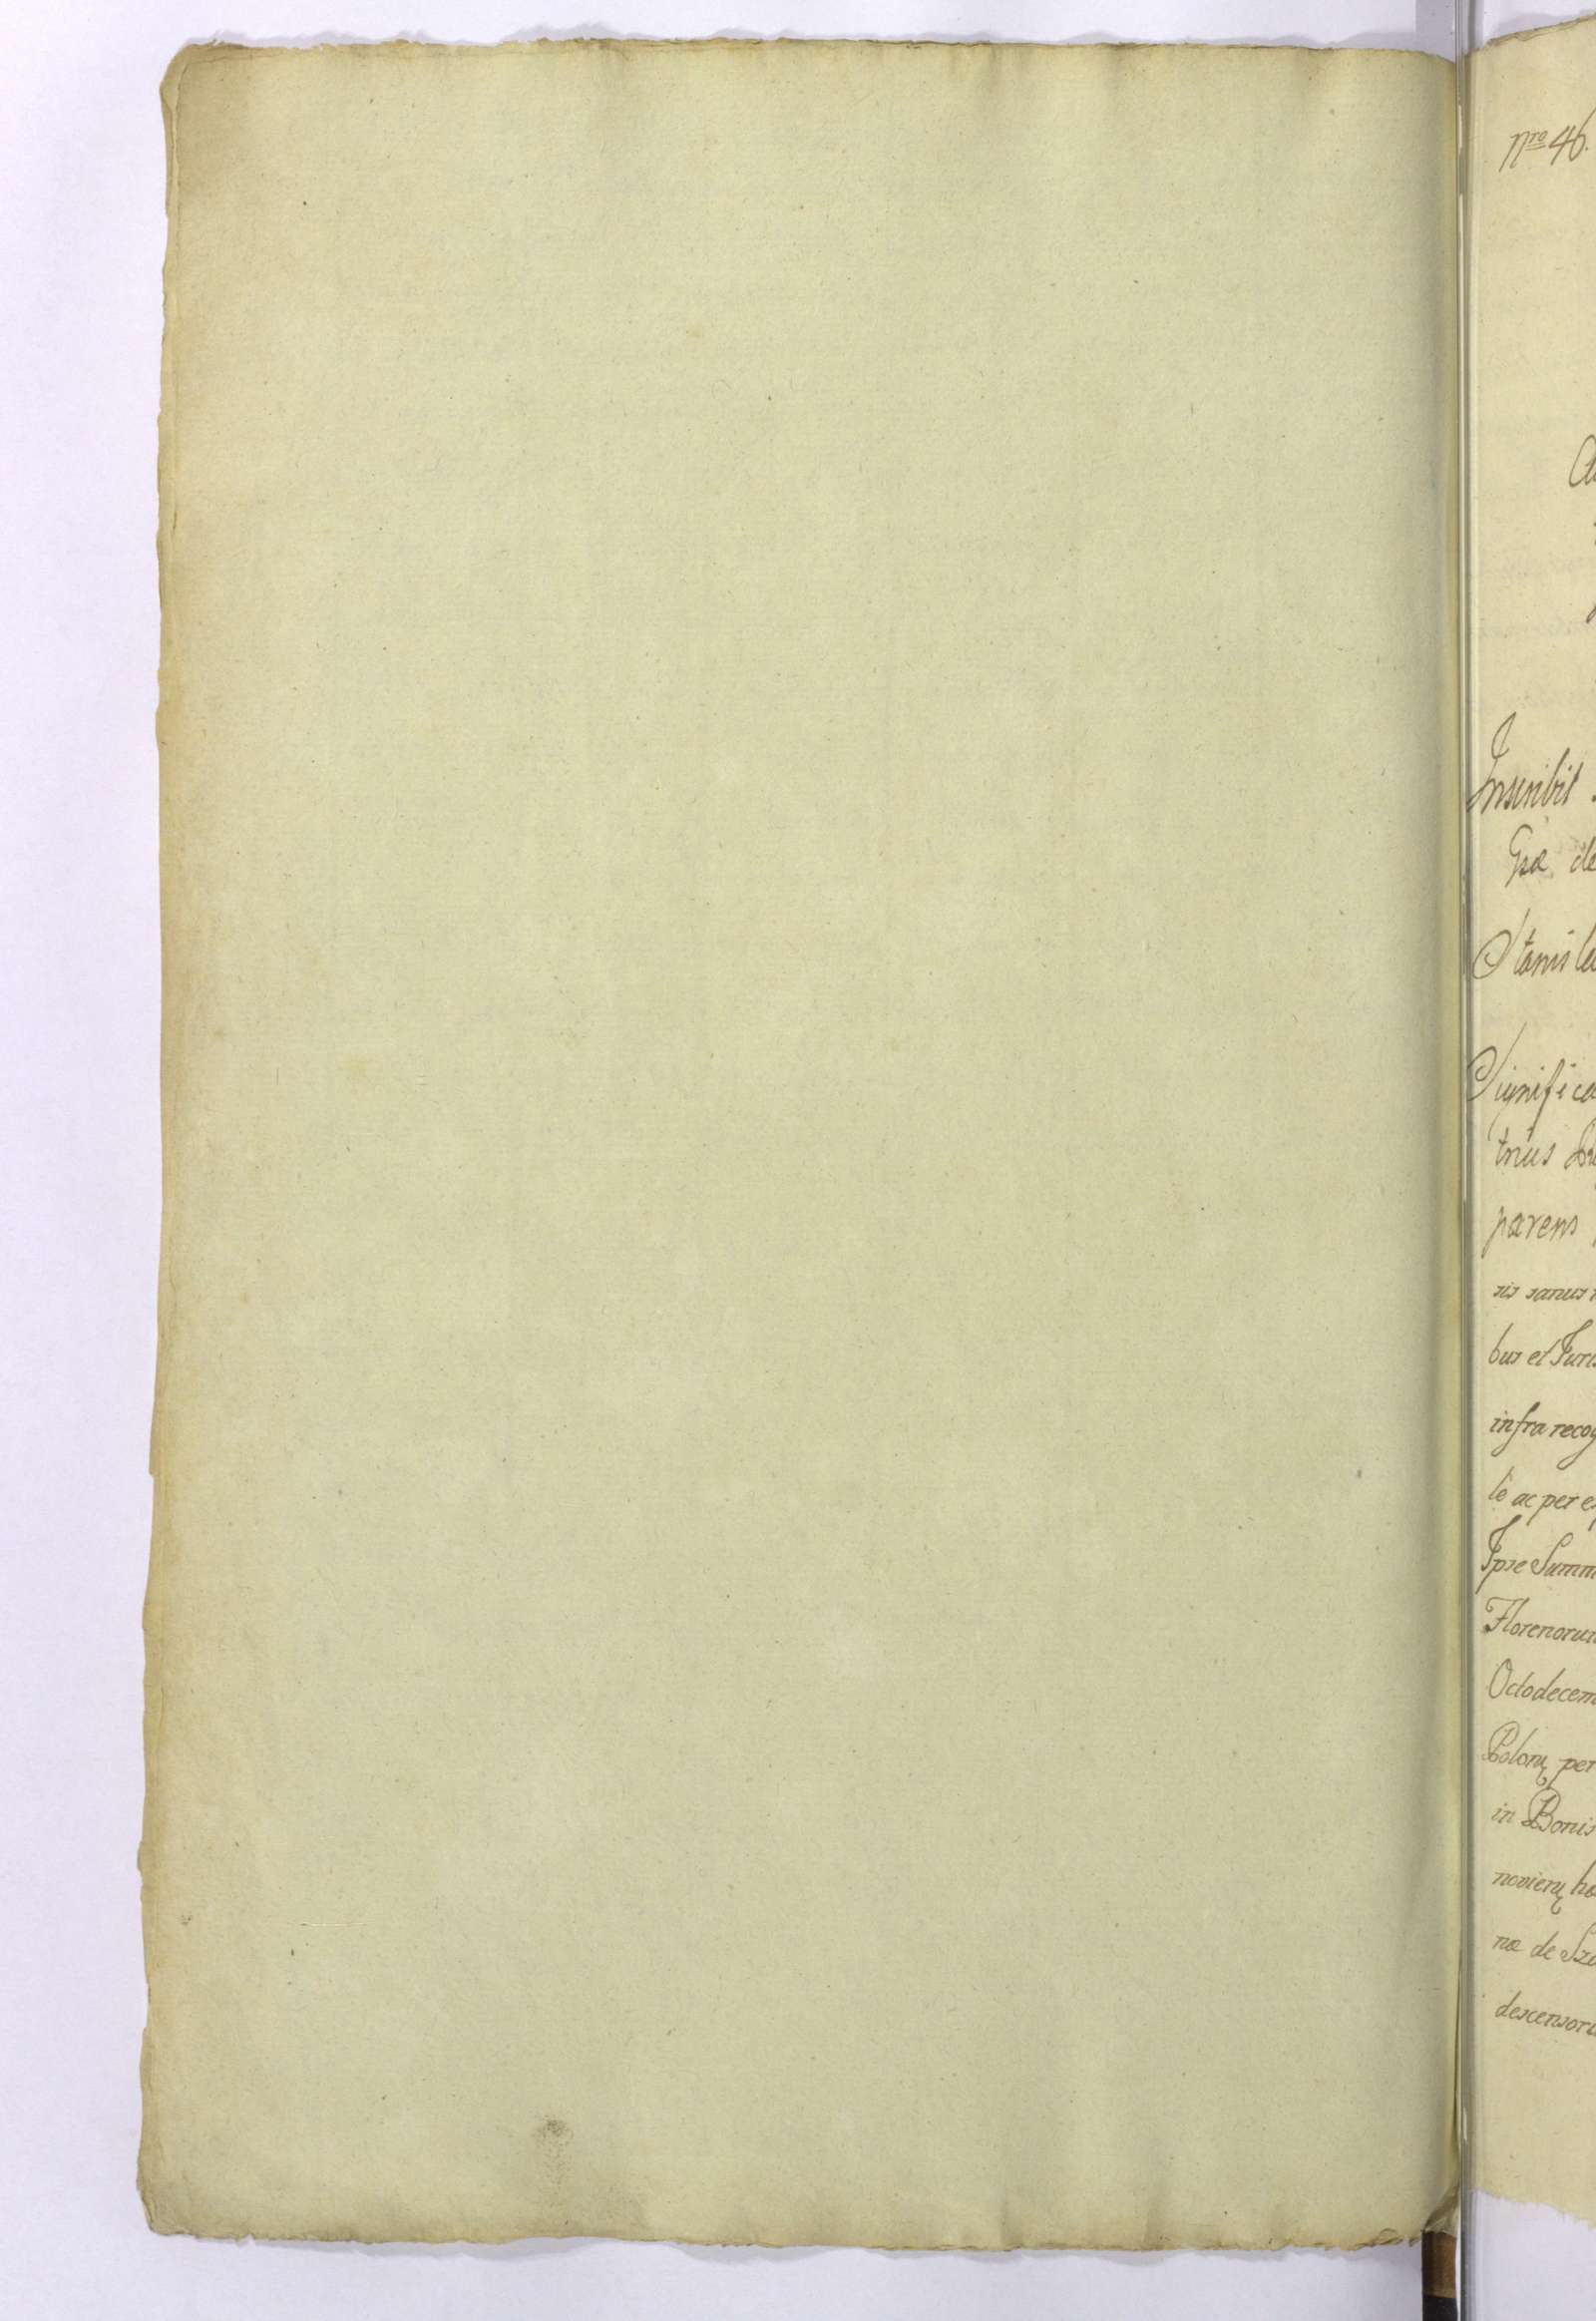 nro 46.
Inscribit
Gsæ de
Stanisla
Significa
trius
parens
sis sanus
bus et Juris
infra recog
lè ac per e
Ipse Summ
Florenorum
Octodecem
Polonę per
in Bonis
novienę ha
næ de Sz
descensori